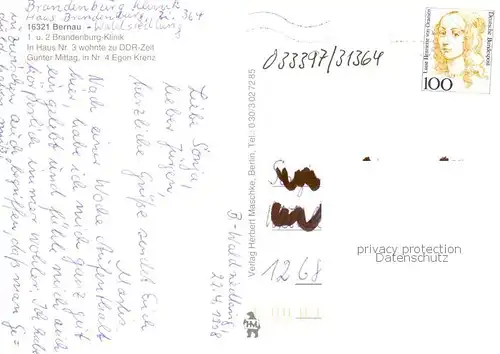 Brandenburg Klinik
Haus Brandenburg, Zi. 364
16321 Bernau - Waldsiedlung
1. u. 2 Brandenburg-Klinik
In Haus Nr. 3 wohnte zu DDR-Zeit
Günter Mittag, in Nr. 4 Egon Krenz
B-Waldsiedlung
22.4.1998
Liebe Sonja,
lieber Jürgen,
herzliche Grüße sendet Euch
Martin.
Nach einer Woche Aufenthalt
hier, habe ich mich ganz gut
eingelebt und fühle mich auch
körperlich immer wohler. Ich habe
auch begriffen, daß man
Verlag Herbert Maschke, Berlin, Tel.: 0 30/3 02 72 85
033397/31364
Deutsche Bundespost
Luise Henriette von Oranien
100
1268
privacy protection
Datenschutz
HM